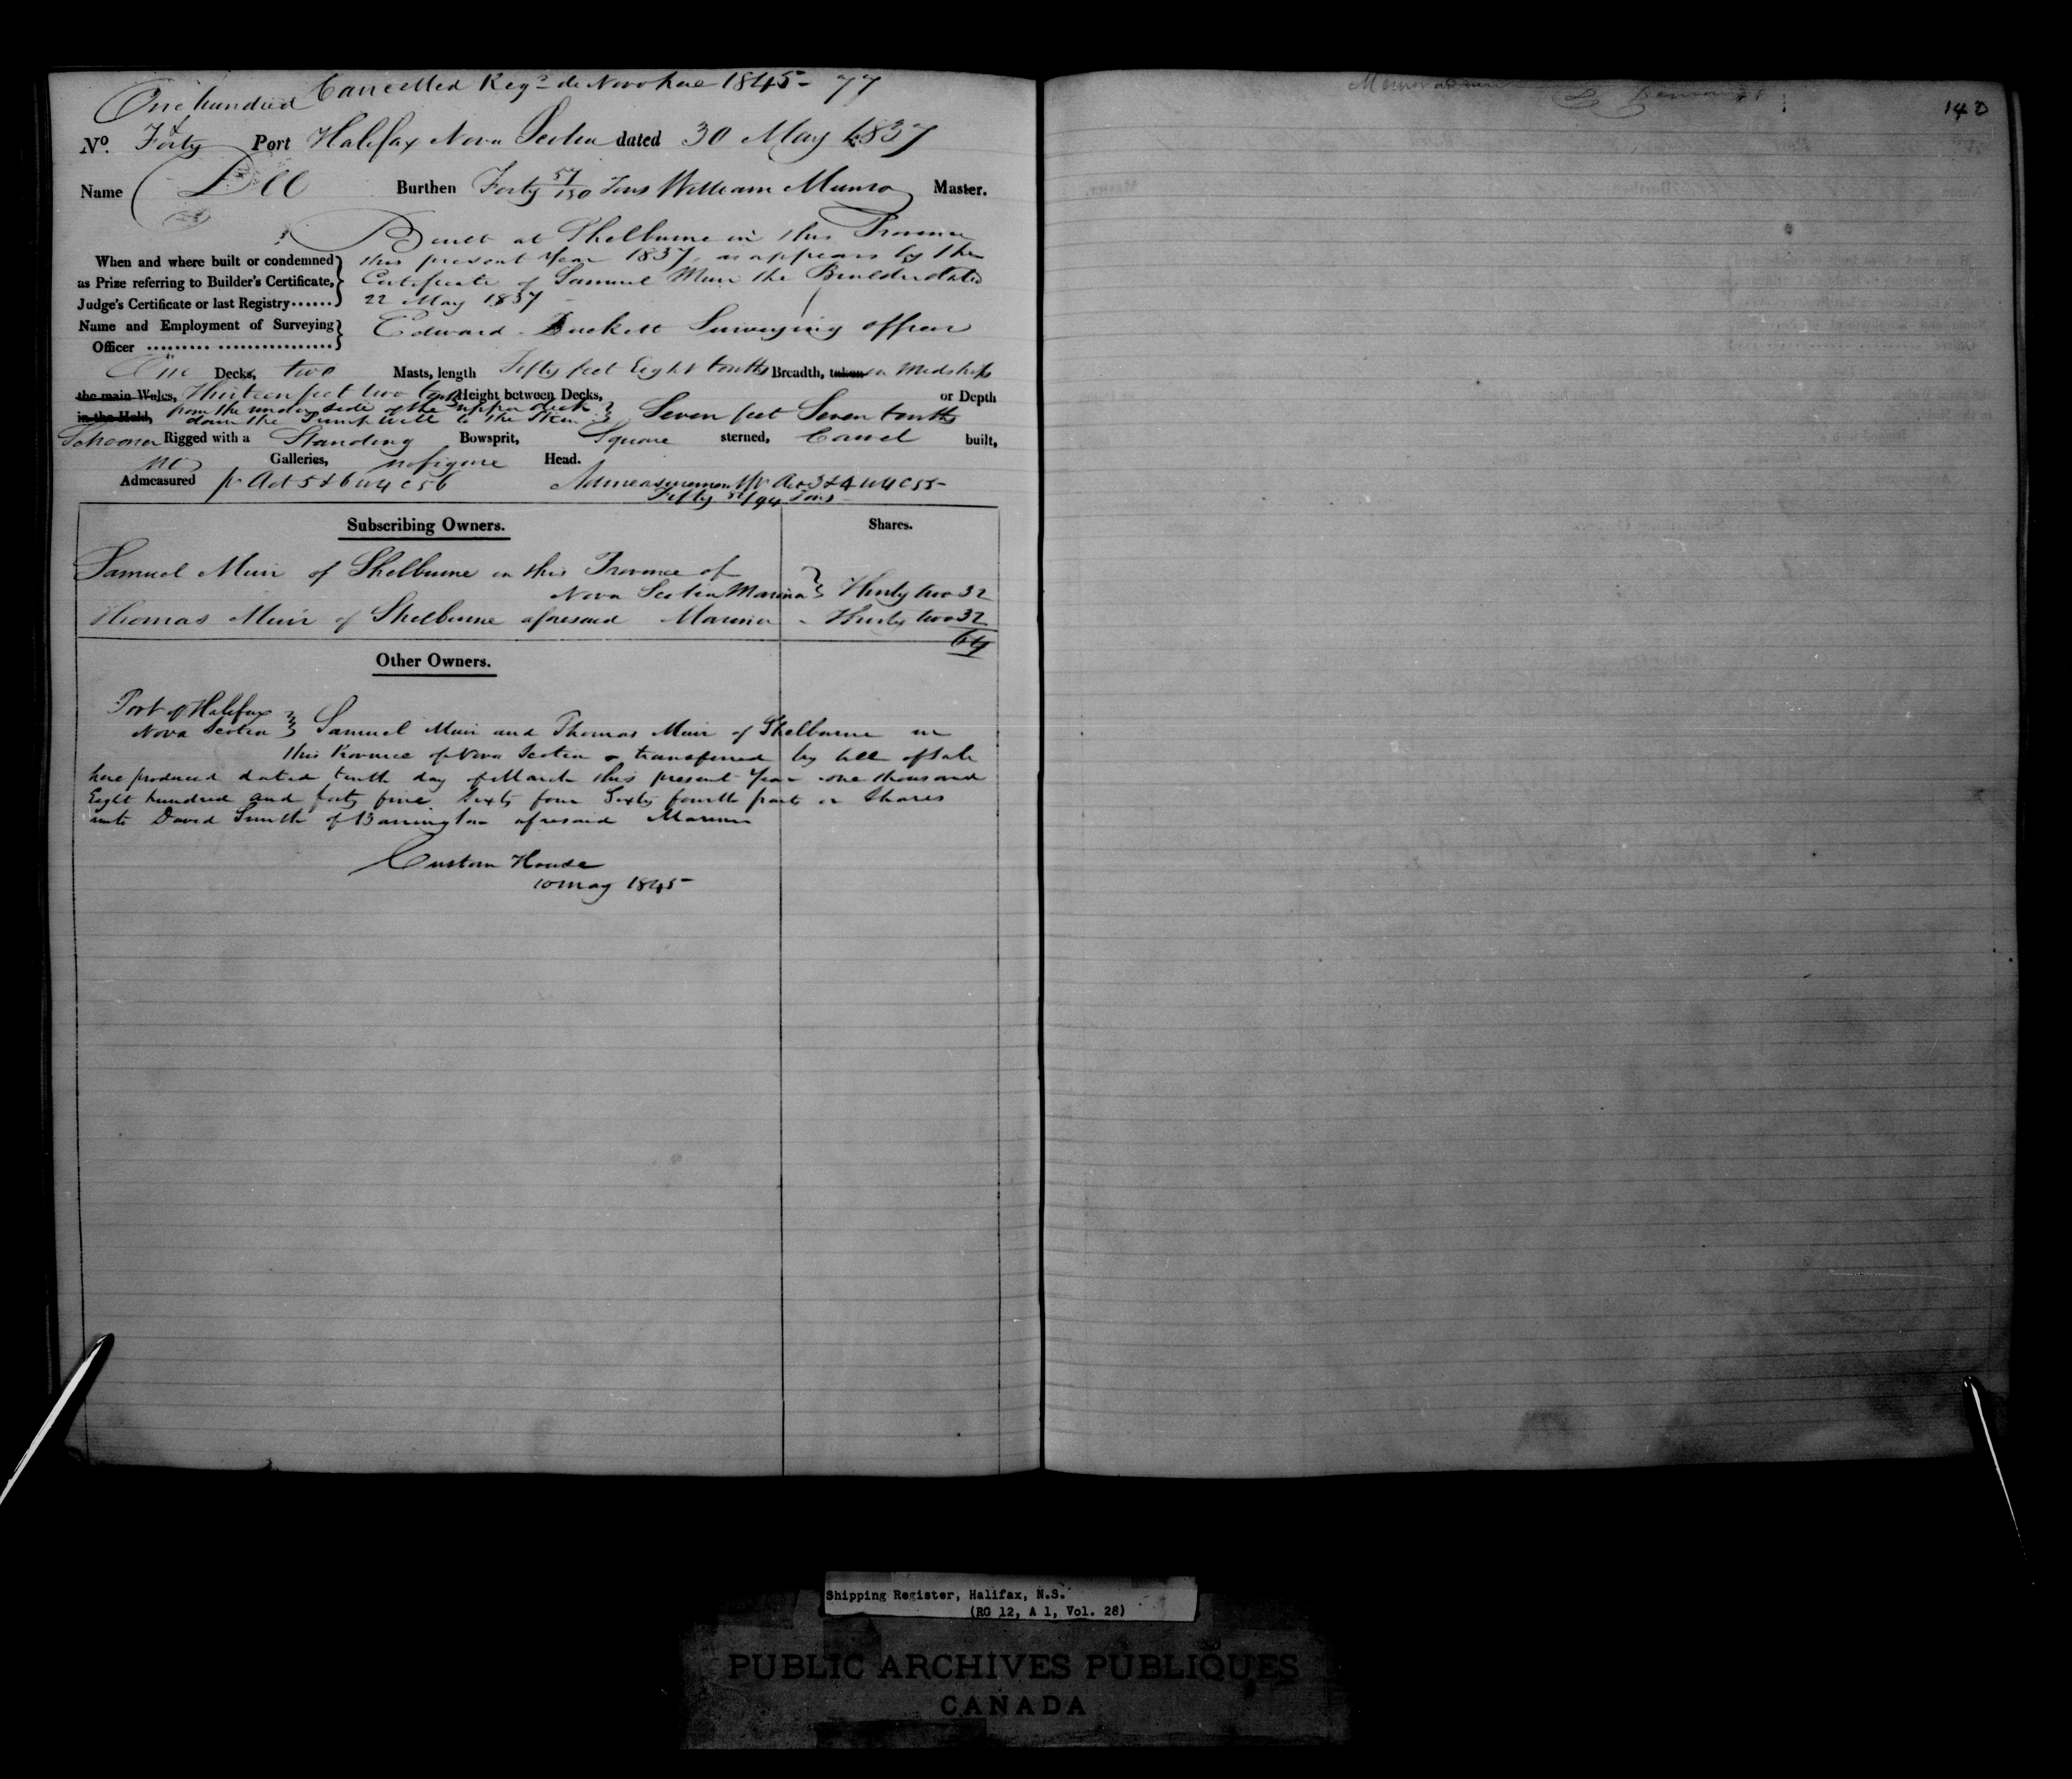 Cancelled Regd de Novo here 1845 - 77
One hundred &
No. Forty Port Halifax Nova Scotia dated 30 May 1837
Name Dee Burthen Forty 57/130 Tons William Munro Master.
Built at Shelburne in this Province
When and where built or condemned this present Year 1837, as appears by the
as Prize referring to Builder's Certificate, Certificate of Samuel Muir the Builder dated
Judge's Certificate or last Registry...... 22 May 1837 -
Name and Employment of Surveying Edward Duckett Surveying officer
Officer
One Decks, two Masts, length Fifty feet Eight tenths Breadth, taken in Midships
the main Wales, Thirteen feet two tenths Height between Decks, or Depth
in the Hold, from the under side of the upper deck Seven feet Seven tenths
down the Pump well to the Skin
Schooner Rigged with a Standing Bowsprit, Square sterned, Carvel built,
no Galleries, no figure Head.
Admeasured pr Act 5 & 6 W4 C56 Admeasurement pr Act 3 & 4 W4 C55 -
Fifty /94 Tons
Subscribing Owners. Shares.
Samuel Muir of Shelburne in this Province of
Nova Scotia Mariner Thirty two 32
Thomas Muir of Shelburne aforesaid Mariner - Thirty two 32
64
Other Owners.
Port of Halifax
Nova Scotia Samuel Muir and Thomas Muir of Shelburne in
this Province of Nova Scotia transferred by bill of Sale
here produced dated tenth day of March this present Year one thousand
Eight hundred and forty five Sixty four Sixty fourth parts or Shares
unto David Smith of Barrington aforesaid Mariner
Custom House
10 May 1845 -
140
Shipping Register, Halifax, N.S.
(RG 12, A 1, Vol. 28)
PUBLIC ARCHIVES PUBLIQUES
CANADA